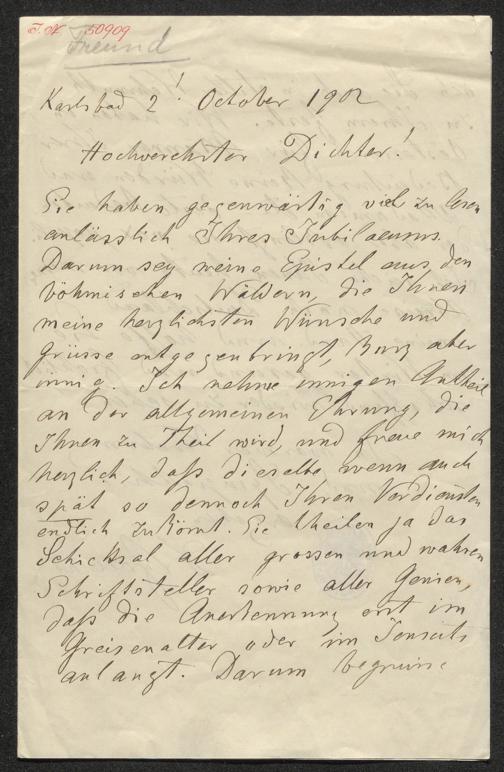 I. N. 50909
Freund
Karlsbad 2! October 1902
Hochverehrter Dichter!
Sie haben gegenwärtig viel zu lesen
anlässlich Ihres Jubilaeums.
Darum sey meine Epistel aus den
böhmischen Wäldern, die Ihnen
meine herzlichsten Wünsche und
Grüsse entgegenbringt, kurz aber
innig. Ich nehme innigen Antheil
an der allgemeinen Ehrung, die
Ihnen zu Theil wird, und freue mich
herzlich, daß dieselbe, wenn auch
spät so dennoch Ihren Verdiensten
endlich zukömt. Sie theilen ja das
Schicksal aller grossen und wahren
Schriftsteller sowie aller Genien,
daß die Anerkennung erst im
Greisenalter oder im Jenseits
anlangt. Darum